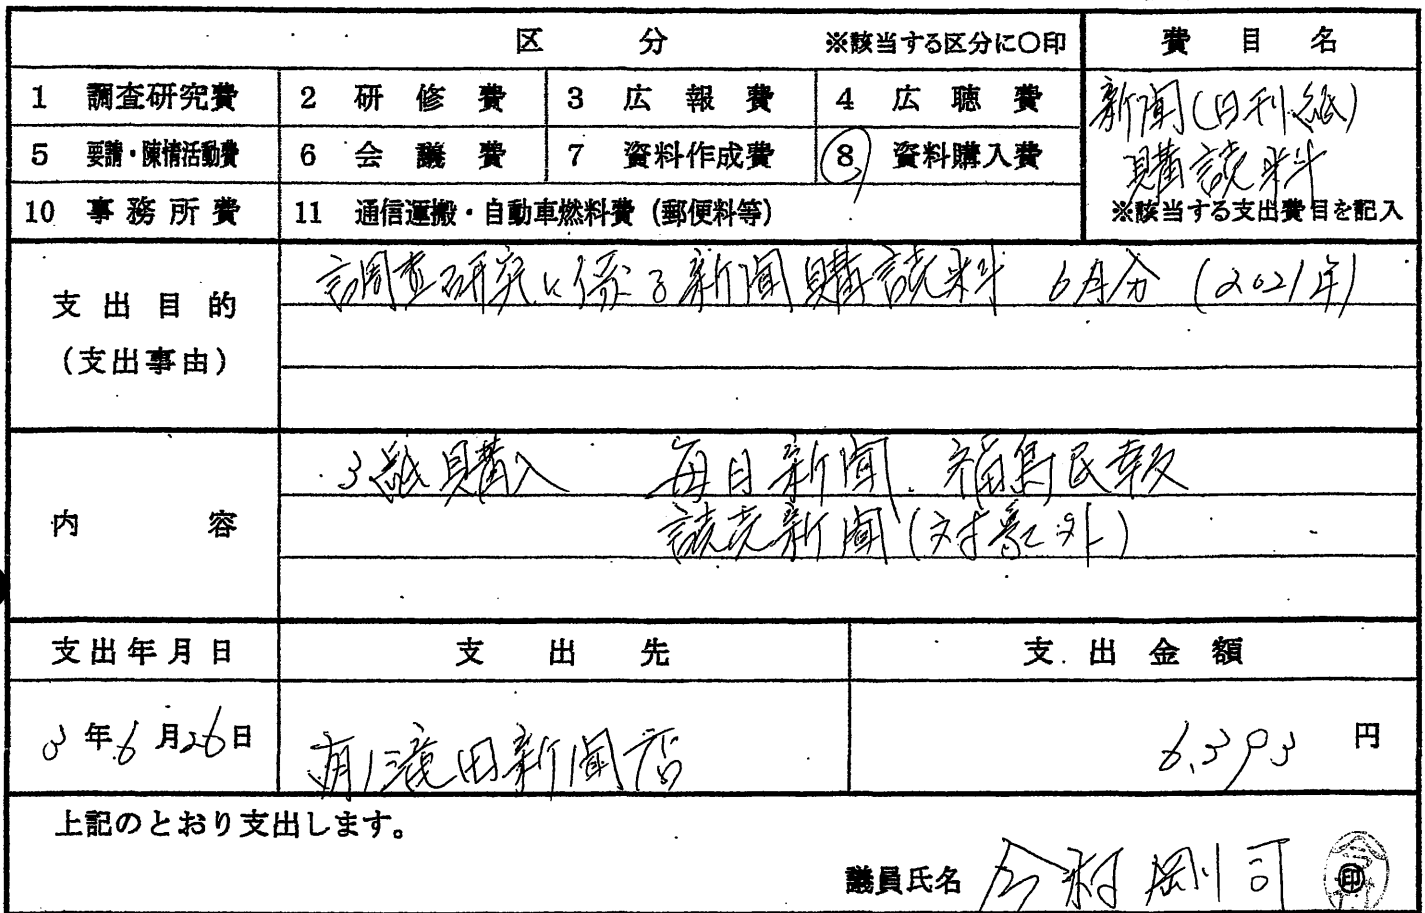 区 分 ※該当する区分に〇印 費目名
1 調査研究費 2 研修費 3 広報費 4 広聴費 新聞(日刊紙)
5 要請・陳情活動費 6 会議費 7 資料作成費 8 資料購入費 購読料
10 事務所費 11 通信運搬・自動車燃料費(郵便料等) ※該当する支出費目を記入
支出目的 調査研究に係る新聞購読料 6月分(2021年)
(支出事由)
3紙購入 毎日新聞、福島民報
内容 読売新聞(対象外)
支出年月日 支出先 支出金額
3年6月26日 (有)滝田新聞店 6,393円
上記のとおり支出します。
議員氏名 今村剛司 印